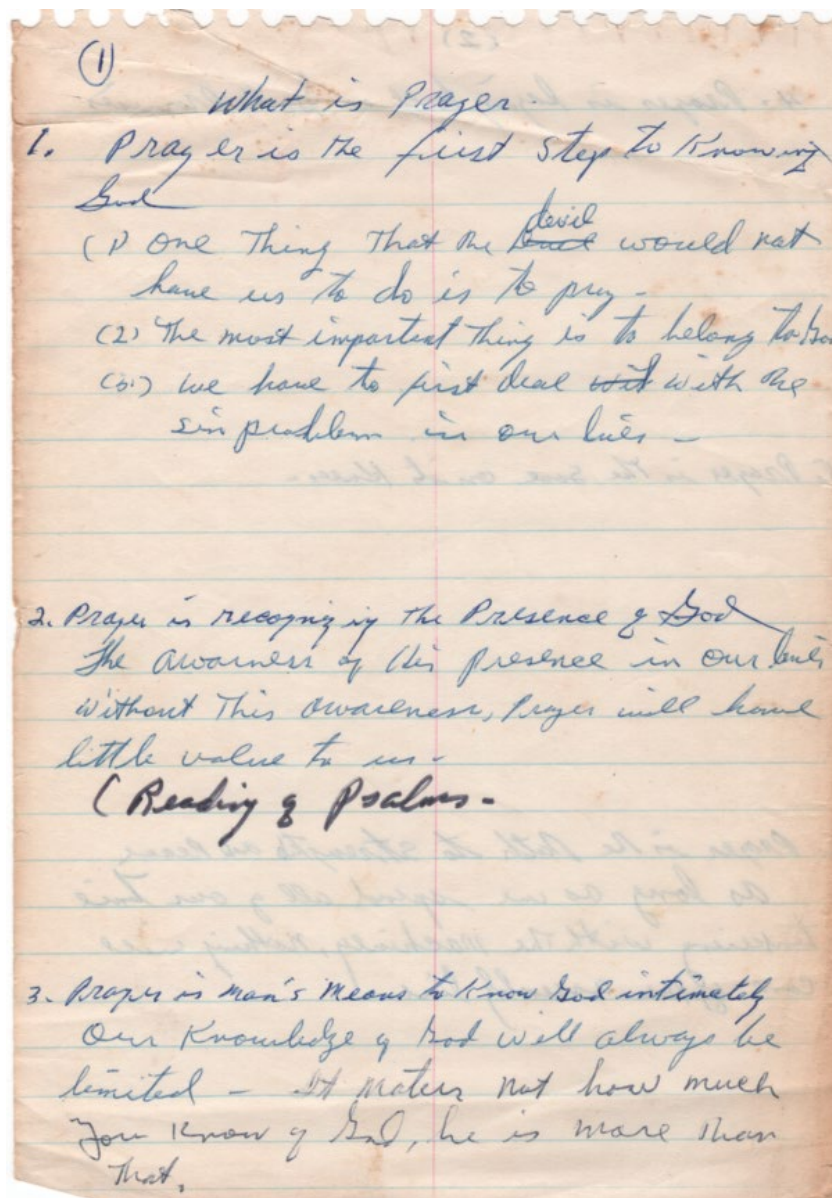 (1)
What is Prayer-
1. Prayer is the first Step to Knowing
God
(1) One Thing That the devil would not
have us to do is to pray-
(2) The most important Thing is to belong to God
(3) we have to first deal with the
sin problem in our lives-
2. Prayer is recognizing the Presence of God
The awarness of His presence in our lives
Without This awareness, Prayer will have
little value to us-
(Reading of Psalms-
3. Prayer is man's means to Know God intimately
Our Knowledge of God will always be
limited - It maters not how much
You Know of God, he is more than
That.